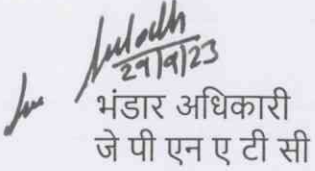 29/9/23
भंडार अधिकारी
जे पी एन ए टी सी